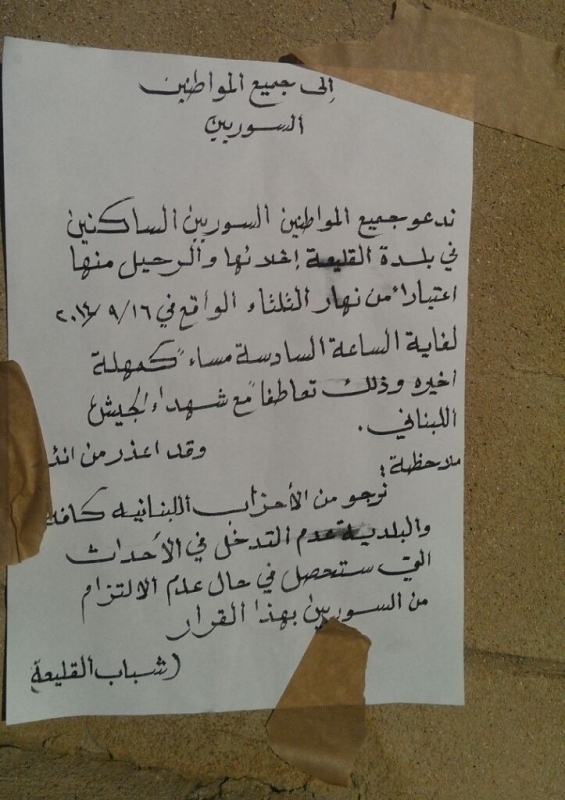 إلى جميع المواطنين
السوريين
ندعو جميع المواطنين السوريين الساكنين
في بلدة القليعة إخلائها والرحيل منها
اعتباراً من نهار الثلثاء الواقع في ٩/١٦/٢٠١٤
لغاية الساعة السادسة مساءً كمهلة
اخيره وذلك تعاطفاً مع شهداء الجيش
اللبناني.
وقد اعذر من انذ
ملاحظة:
نرجو من الأحزاب اللبنانيه كافة
والبلدية عدم التدخل في الأحداث
التي ستحصل في حال عدم الالتزام
من السوريين بهذا القرار
(شباب القليعة